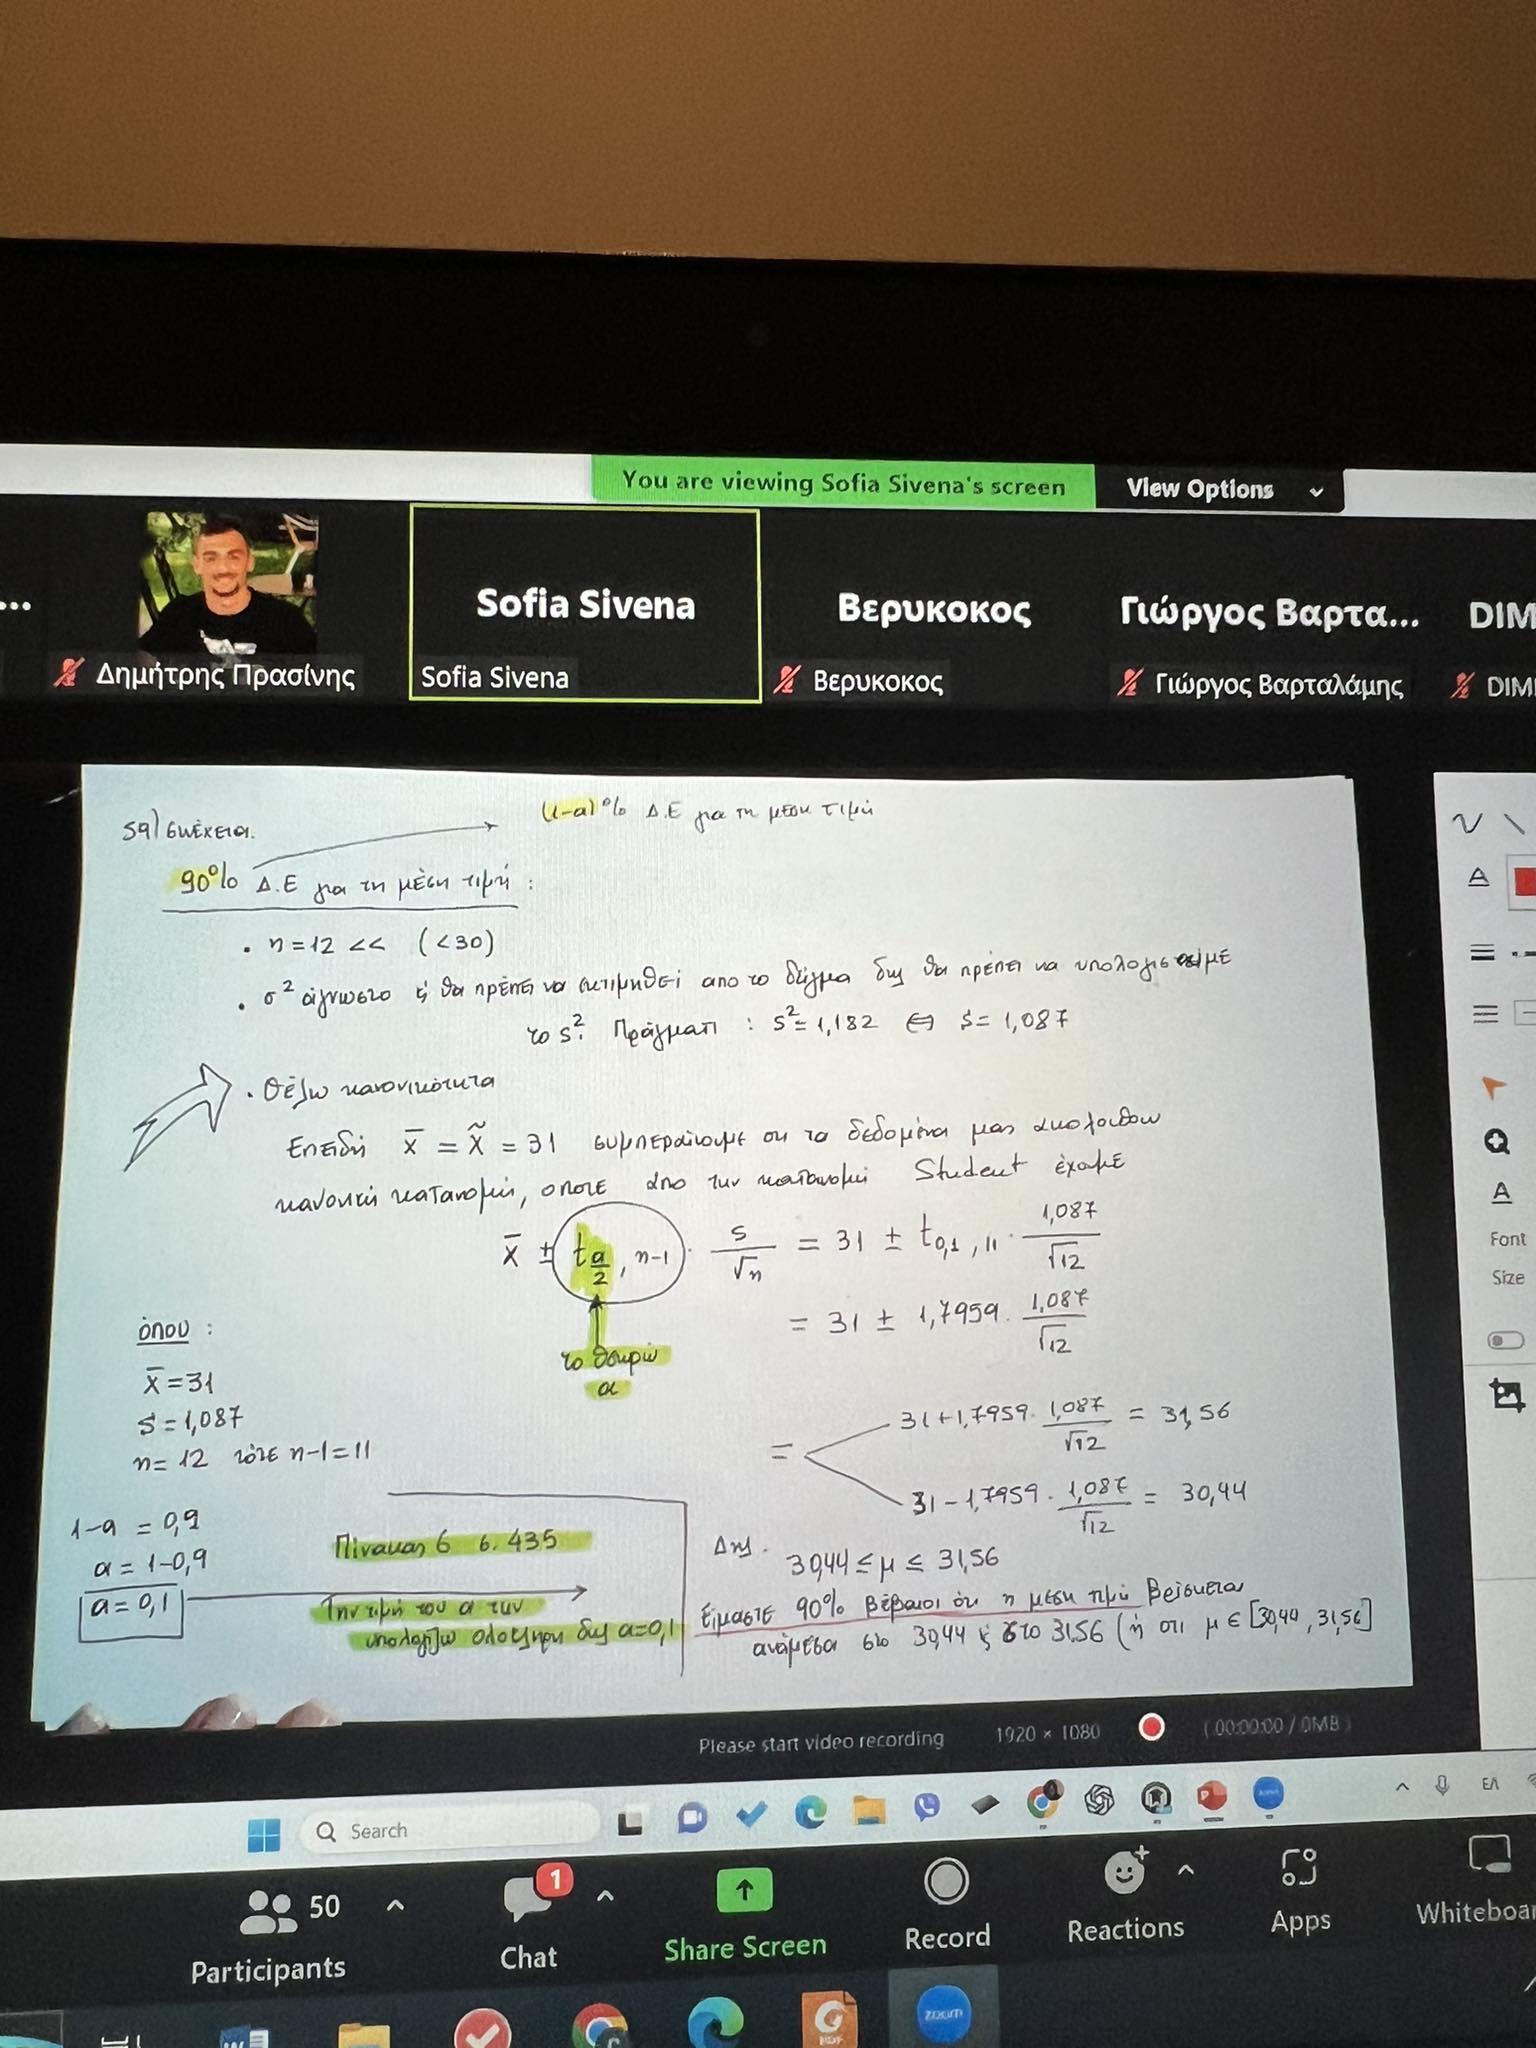 You are viewing Sofia Sivena's screen
View Options
...
Sofia Sivena
Βερυκοκος
Γιώργος Βαρτα...
DIM
Δημήτρης Πρασίνης
Sofia Sivena
Βερυκοκος
Γιώργος Βαρταλάμης
DIM
5α) συνέχεια.
(1-α)% Δ.Ε για τη μέση τιμή
90% Δ.Ε για τη μέση τιμή :
• n = 12 << (<30)
• σ² άγνωστο ς θα πρέπει να εκτιμηθεί απο το δείγμα δης θα πρέπει να υπολογίσουμε
το s². Πράγματι : s² = 1,182 ⇔ s = 1,087
• Θέλω κανονικότητα
Επειδή x̄ = x̃ = 31 συμπεραίνουμε οτι τα δεδομένα μας ακολουθουν
κανονική κατανομή, οποτε απο την κατανομή Student έχουμε
x̄ ± t α/2 , n-1 · s/√n = 31 ± t0,1 , 11 · 1,087/√12
= 31 ± 1,7959 · 1,087/√12
το θεωρώ
α
όπου :
x̄ = 31
s = 1,087
n = 12 τότε n-1 = 11
= 31 + 1,7959 · 1,087/√12 = 31,56
31 - 1,7959 · 1,087/√12 = 30,44
1-α = 0,9
α = 1-0,9
α = 0,1
Πίνακας 6 σ. 435
Την τιμή του α την
υπολογίζω ολόκληρη δης α=0,1
Δης.
30,44 ≤ μ ≤ 31,56
Είμαστε 90% βέβαιοι ότι η μέση τιμή βρίσκεται
ανάμεσα στο 30,44 ς στο 31,56 (ή οτι μ ∈ [30,44 , 31,56]
A
A
Font
Size
Please start video recording
1920 × 1080
(00:00:00 / 0MB)
Search
ΕΛ
50
Participants
1
Chat
Share Screen
Record
Reactions
Apps
Whiteboar
W
zoom